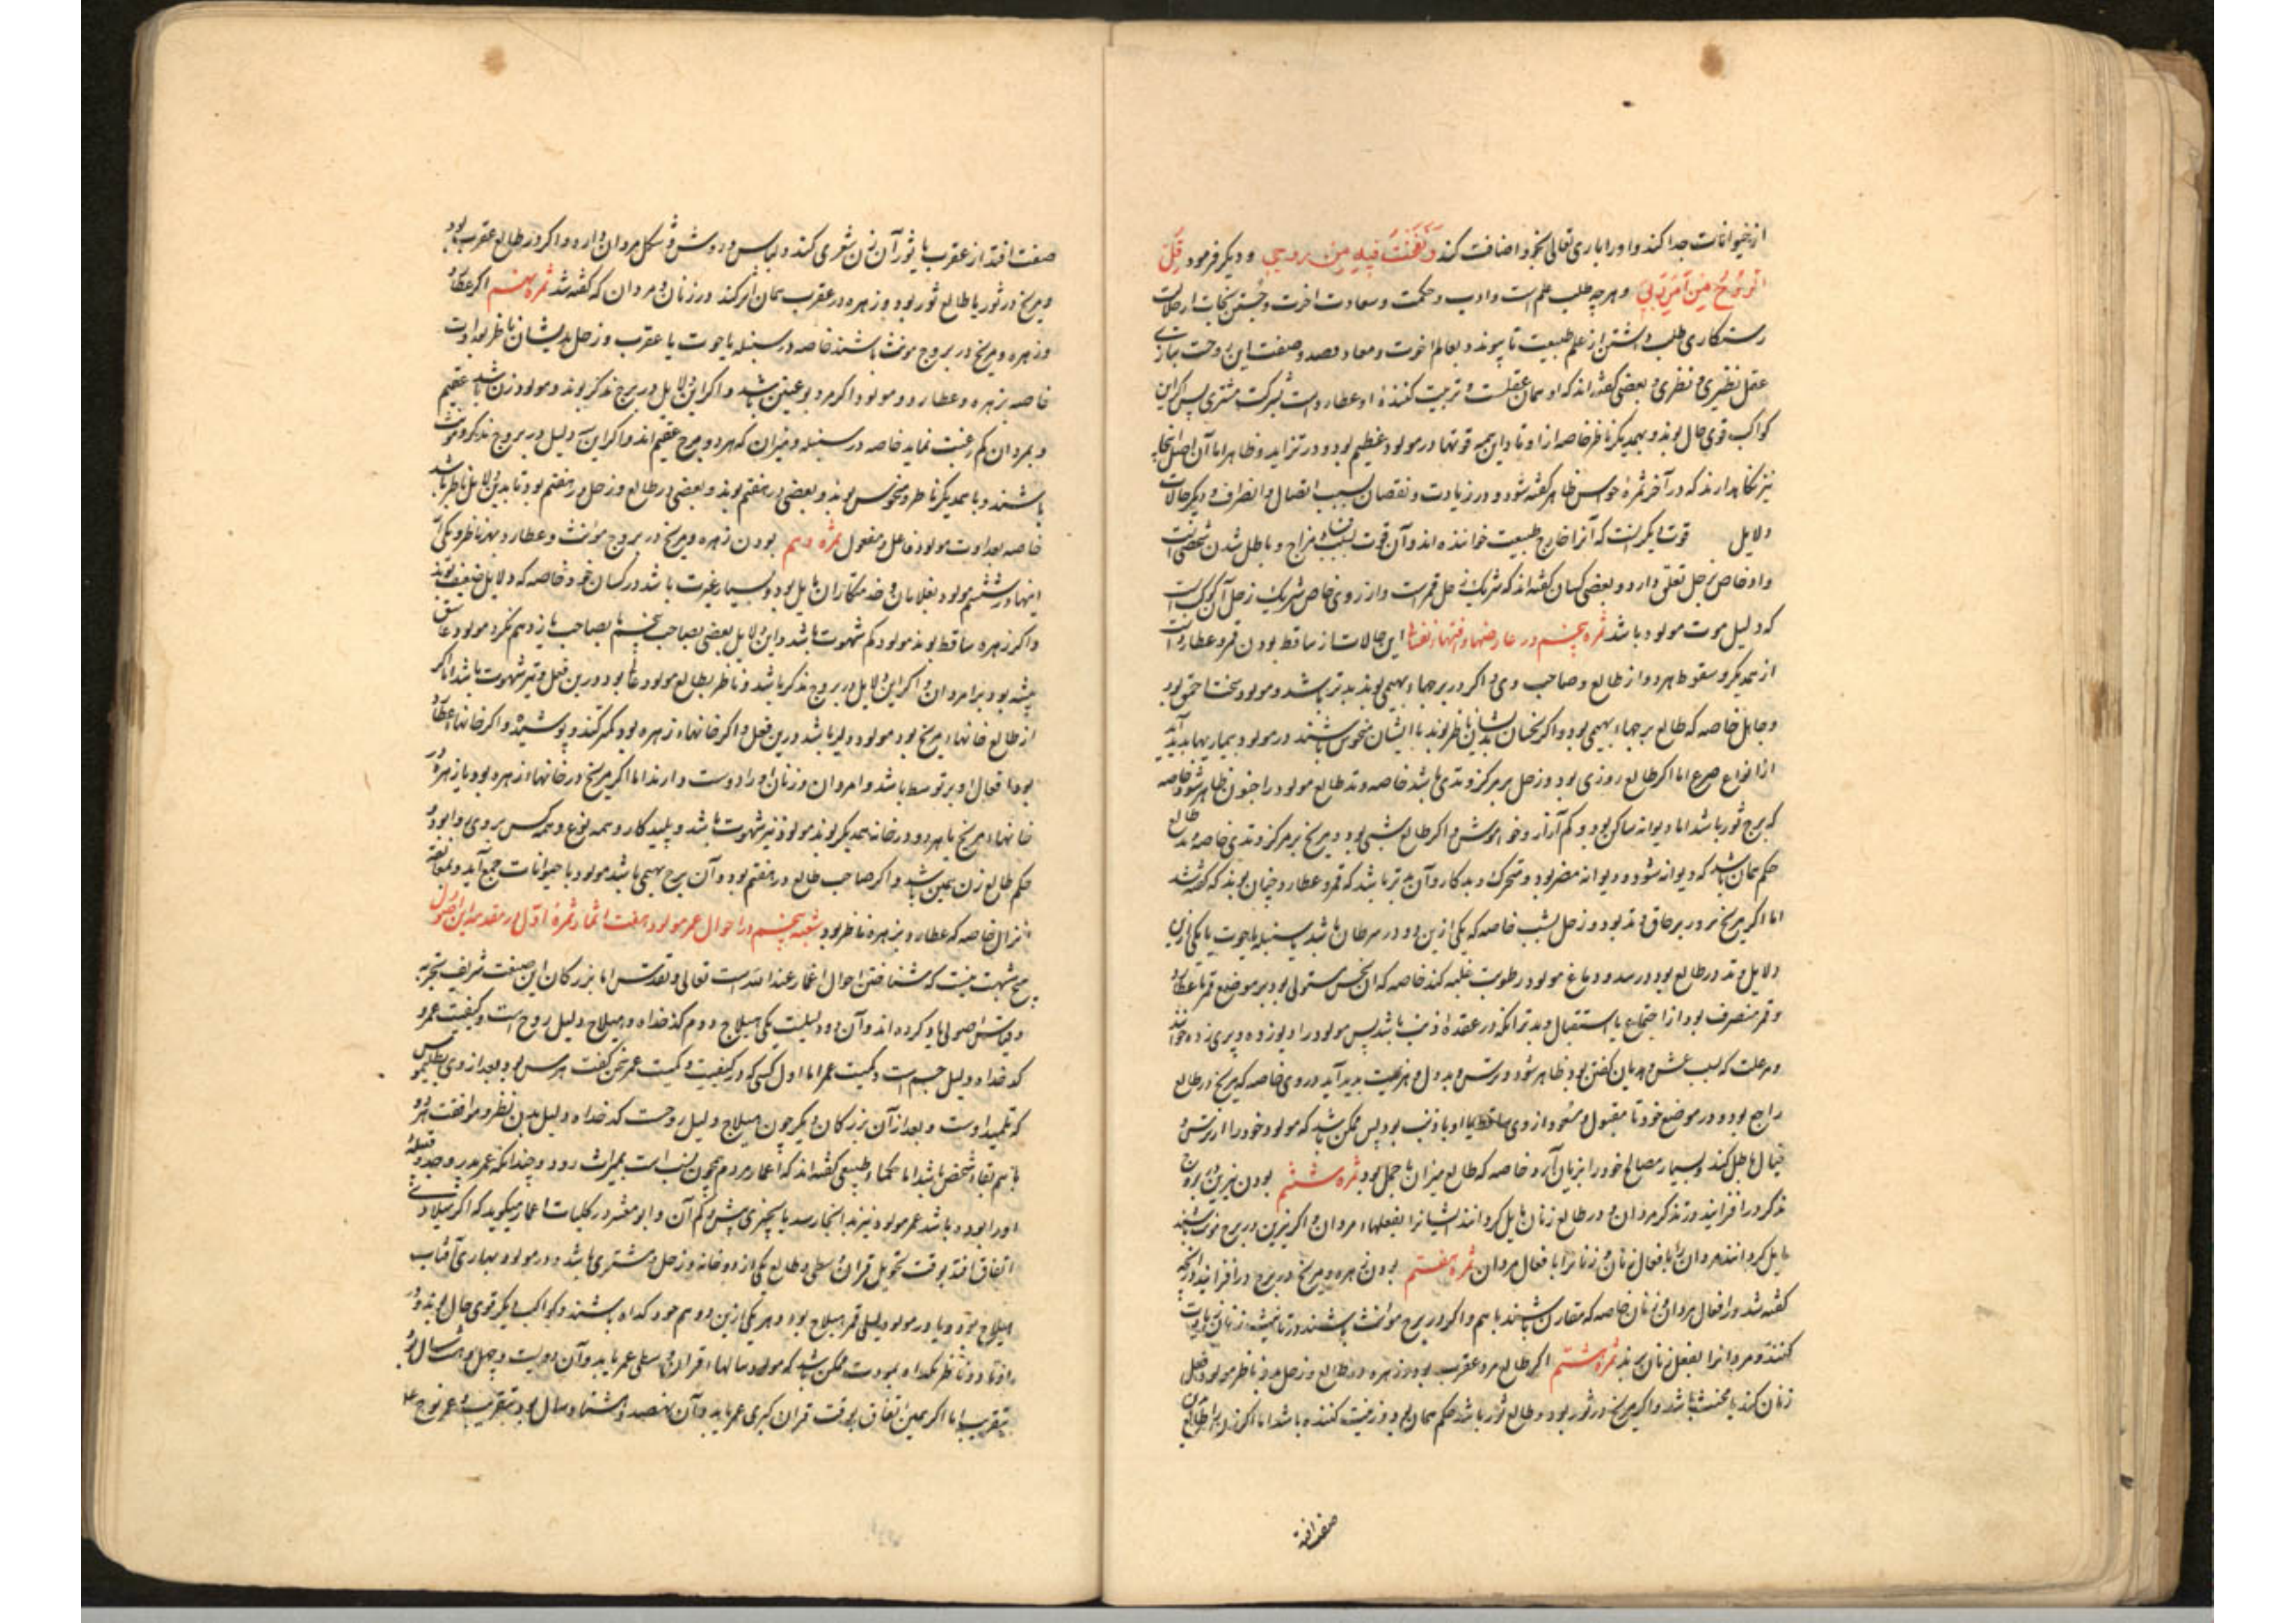 از حیوانات جدا کند و او را باری تعالی بخود اضافت کند وَنَفَخْتُ فیهِ مِنْ روحی و دیگر فرمود قل
الرّوحُ مِنْ اَمرِ رَبّی و هرچه طلب علم است و ادب و حکمت و سعادت اخرت و جُستن نجات از حالات
رستکاری طلب داشتن از علم طبیعت تا پیوند بعالم اخوت و معاد قصد و صفت این روحت بیاری
عقل نظیری و نظری و بعضی کفته اند که او همان عقلست و تربیت کننده او عطاردست بشرکت مشتری پس اگر این
کواکب قوی حال بوند و بهمدیکر ناظر خاصه از اوتاد این همه قوتها در مولود عظیم بود و در تزاید و ظاهر اما آن اصل اینجا
نیز نکاه دارند که در آخر ثمره حواس ظاهر کفته شود و در زیادت و نقصان بسبب اتصال و انصراف و دیکر حالات
دلایل قوت دیکر انست که آنرا خارج طبیعت خوانده اند و آن قوت بسبب مزاج و باطل شدن شخصی است
و او خاص بزحل تعلق دارد و بعضی کسان کفته اند که شریک زحل قمرست و از روی خاص شریک زحل آن کوکب است
که دلیل موت مولود باشد ثمره پنجم در عارضها و افتها نفسانی این حالات از ساقط بودن قمر و عطارد است
از همدیکر و سقوط هر دو از طالع و صاحب وی و اکر در برجهاء بهیمی بوند بدتر باشد و مولود سخت احمق بود
و جاهل خاصه که طالع برجهاء بهیمی بود و اکر نحسان بدیشان ناظر بوند یا ایشان منحوس باشند در مولود بیماریها پدید آید
از انواع صرع اما اکر طالع روزی بود و زحل بر مرکز وتدی باشد خاصه وتد طالع مولود را جنون ظاهر شود خاصه
که برج ثور باشد اما دیوانه ساکن بود و کم آزار و خاموش و اکر طالع شبی بود و مریخ بر مرکز وتدی خاصه وتد طالع
حکم همان باشد که دیوانه شود و دیوانه مضر بود و متحرک و بدکار و آن بدتر باشد که قمر و عطارد چنان بوند که کفته شد
اما اکر مریخ بروز بر حاق وتد بود و زحل بشب خاصه که یکی ازین دو در سرطان باشد یا سنبله یا حوت یا یکی ازین
دلایل وتد در طالع بود و رسد و دماغ مولود رطوبت غلبه کند خاصه که ان نحس مستولی بود بر موضع قمر یا عطارد
و قمر منصرف بود از اجتماع یا استقبال و بدتر آنکه در عقده ذنب باشد پس مولود را دیو زده و پری زده خوانند
و هر علت که بسبب غش و هذیان کفتن بود ظاهر شود و ترس و بددلی و هزیمت پدید آید در وی خاصه که مریخ در طالع
راجع بود و در موضع خود نا مقبول و سعود از وی ساقط یا او با ذنب بود پس ممکن باشد که مولود خود را از ترس و
خیال باطل کند و بسیار مصالح خود را بزیان آرد خاصه که طالع میزان یا حمل بود ثمره ششم بودن نیرین در بروج
مذکر درافزایند در تذکر مردان و در طالع زنان مایل کردانند ایشانرا بفعلهاء مردان و اکر نیرین در برج مونث باشند
مایل کردانند مردان را بافعال زنان و زنانرا بافعال مردان ثمره هفتم بودن زهره و مریخ در برج درافزایند در آنچه
کفته شد در افعال مردان و زنان خاصه که مقارن باشند با هم و اکر در برج مونث باشند در تانیث زنان زیادت
کنند و مردانرا بفعل زنان برند ثمره هشتم اکر طالع مرد عقرب بود و زهره در طالع و زحل بدو ناظر مولود فعل
زنان کند یا مخنث باشد و اکر مریخ در ثور بود و طالع ثور باشد حکم همان بود و زحمت کننده باشد اما اکر زن را طالع برین
صفت افتد
صفت افتد از عقرب یا ثور آن زن شعری کند و لباس و روش و شکل مردان دارد و اکر در طالع عقرب بود
و مریخ در ثور یا طالع ثور بود و زهره در عقرب همان اثر کند در زنان و مردان که کفته شد ثمره نهم اکر عطارد
و زهره و مریخ در بروج مونث باشند خاصه در سنبله یا حوت یا عقرب و زحل بدیشان ناظر بعداوت
خاصه بزهره و عطارد و مولود اکر مرد بود عنین باشد و اکر این دلایل در برج مذکر بوند و مولود زن باشد عقیم
و بمردان کم رغبت نماید خاصه در سنبله و میزان که هر دو برج عقیم اند و اکر این دلیل در بروج مذکر و مونث
باشند و با همدیکر ناظر و منحوس بوند و بعضی در هفتم بوند و بعضی در طالع و زحل در هفتم بود تا بدین دلایل ناظر باشد
خاصه بعداوت مولود فاعل و مفعول ثمره دهم بودن زهره و مریخ در بروج مونث و عطارد بهر ناظر و یکی از
اینها در ششم مولود بغلامان و خدمتکاران مایل بود و بسیار غیرت باشد در کسان خود خاصه که دلایل ضعیف بوند
و اکر زهره ساقط بوند مولود کم شهوت باشد و این دلایل بعضی بصاحب پنجم یا بصاحب یازدهم نکرد مولود عاشق
پیشه بود بر امردان و اکر این دلایل در بروج مذکر باشد و ناظر بطالع مولود غالب بود درین فعل و تیز شهوت باشد اما اکر
از طالع خانهاء مریخ بود مولود دلیر باشد درین فعل و اکر خانهاء زهره بود کمتر کند و پوشیده و اکر خانهاء عطارد
بود افعال او بر توسط باشد و امردان و زنان را دوست دارند اما اکر مریخ در خانهاء زهره بود یا زهره در
خانهاء مریخ یا هر دو در خانه همدیکر بوند مولود تیز شهوت باشد و پلید کار و همه نوع و همه کس بر وی روا بود و
حکم طالع زن همین باشد و اکر صاحب طالع در هفتم بود و آن برج بهیمی باشد مولود با حیوانات جمع آید
انزال خاصه که عطارد بزهره ناظر بود شعبه پنجم در احوال عمر مولود هفت اثمار ثمره اول در مقدمه این اصول
هیچ شبهت نیست که شناختن احوال اعمار عند الله است تعالی و تقدس اما بزرکان این صنعت شریف بتجربه
و قیاس اصولی یاد کرده اند و آن دو دلیلست یکی هیلاج و دوم کدخداه و هیلاج دلیل روح است و کیفیت عمر و
کدخداه دلیل جسم است و کمیت عمر اما اول کسی که در کیفیت و کمیت عمر سخن کفت هرمس بود و بعد از وی بطلیموس
که تلمیذ اوست و بعد از آن بزرکان دیکر چون هیلاج دلیل روحست کدخداه دلیل بدن نظر و موافقت هر دو
با هم بقاء شخص باشد اما حکماء طبیعی کفته اند که اعمار مردم همچون نسب است بمیراث رود و چندانکه عمر پدر و جد و قبیله
او را بود و باشد عمر مولود نیز بدانجا رسد یا بچیزی بیش و کم آن و ابومعشر در کلیات اعمار میکوید که اکر میلادی
اتفاق افتد بوقت تحویل قران وسطی و طالع یکی از دو خانه زحل و مشتری باشد و در مولود نهاری آفتاب
هیلاج بود و یا در مولود لیلی قمر هیلاج بود و هر یکی ازین دو هم خود کدخداه باشند و کواکب دیکر قوی حال و بدو
از اوتاد ناظر بکدخداه بمودت ممکن باشد که مولود سالهاء قران وسطی عمر یابد و آن دویست و چهل و هشت سال بود
بتقریب اما اکر همین اتفاق بوقت قران کبری عمر یابد و آن نهصد و هشتاد سال بود بتقریب و عمر نوح